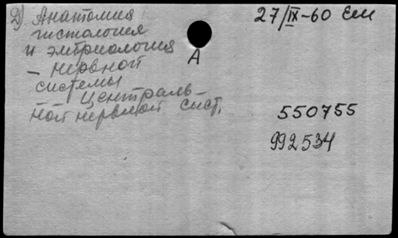 Д) Анатомия
гистология
и эмбриология
- нервной
системы
Централь-
ной нервной сист.
А
27/IX-60 Ем
550755
992534